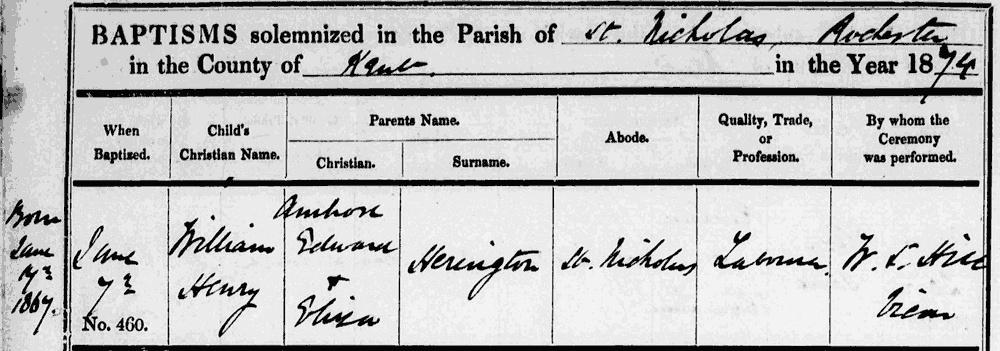 BAPTISMS solemnized in the Parish of St. Nicholas, Rochester
in the County of Kent. in the Year 1874
When Baptized.
Child's Christian Name.
Parents Name.
Christian.
Surname.
Abode.
Quality, Trade, or Profession.
By whom the Ceremony was performed.
Born
June
7th
1867.
June
7th
No. 460.
William
Henry
Ambrose
Edward
+
Eliza
Herington
St. Nicholas
Labourer
W. S. Hill
Vicar